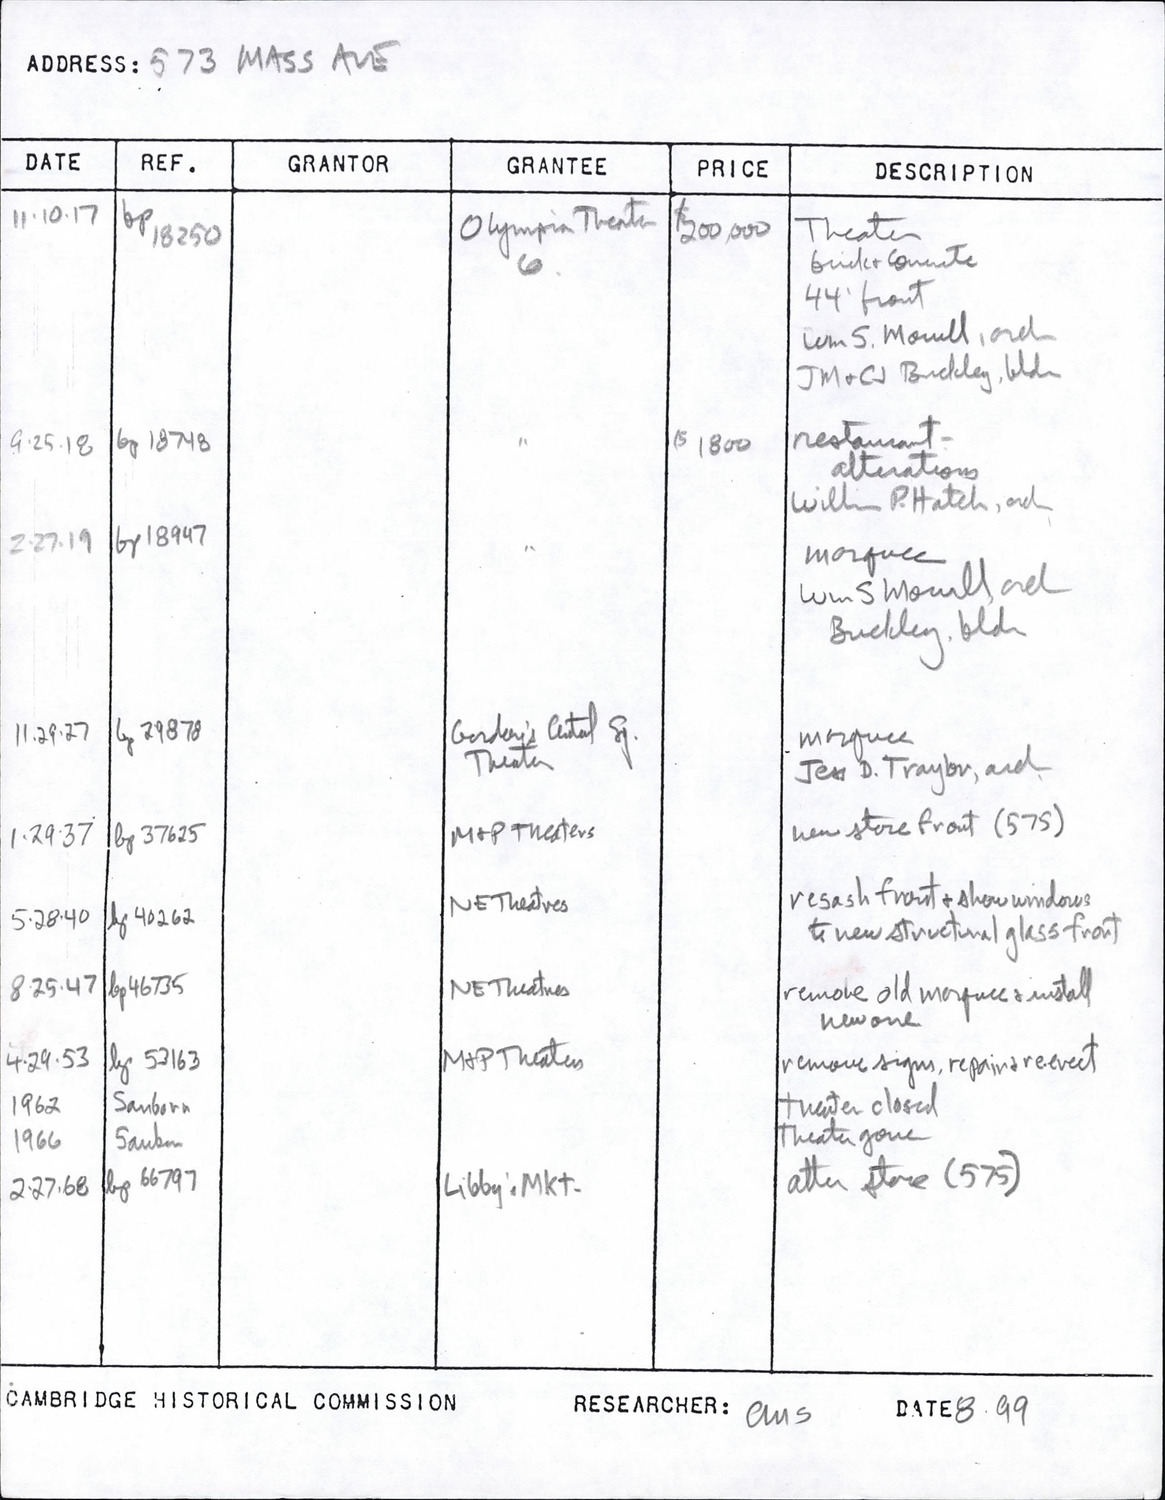 ADDRESS: 573 MASS AVE
DATE REF. GRANTOR GRANTEE PRICE DESCRIPTION
11·10·17 bp 18250 Olympia Theater Co. $200,000 Theater
brick + concrete
44' front
Wm S. Mowll, arch
JM + CJ Buckley, bldr
9·25·18 bp 18748 " $1800 restaurant-
alterations
William P. Hatch, arch
2·27·19 bp 18947 " marquee
Wm S Mowll, arch
Buckley, bldr
11·29·27 bp 29878 Gordon's Central Sq. marquee
Theater Jess D. Traylor, arch.
1·29·37 bp 37625 M+P Theaters new store front (575)
5·28·40 bp 40262 NE Theatres resash front + show windows
to new structural glass front
8·25·47 bp 46735 NE Theatres remove old marquee & install
new one
4·29·53 bp 53163 M+P Theaters remove signs, repair & re-erect
1962 Sanborn theater closed
1966 Sanborn theater gone
2·27·68 bp 66797 Libby's Mkt. alter store (575)
CAMBRIDGE HISTORICAL COMMISSION RESEARCHER: ems DATE 8·99